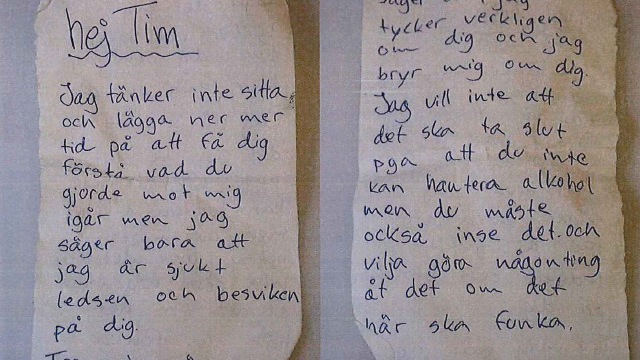 hej Tim
Jag tänker inte sitta
och lägga ner mer
tid på att få dig
förstå vad du
gjorde mot mig
igår men jag
säger bara att
jag är sjukt
ledsen och besviken
på dig.
tycker verkligen
om dig och jag
bryr mig om dig.
Jag vill inte att
det ska ta slut
pga att du inte
kan hantera alkohol
men du måste
också inse det och
vilja göra någonting
åt det om det
här ska funka.